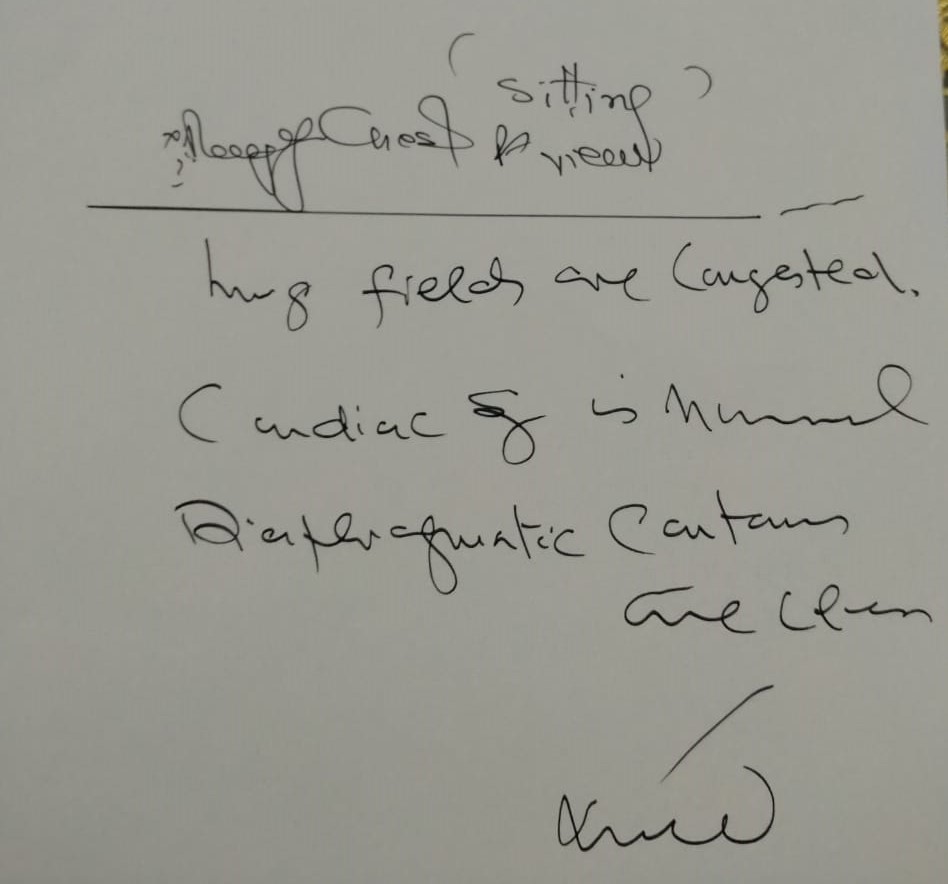 ( Sitting )
Chest PA view
Lung fields are Congested.
Cardiac is Normal
Diaphragmatic Contours
are Clear